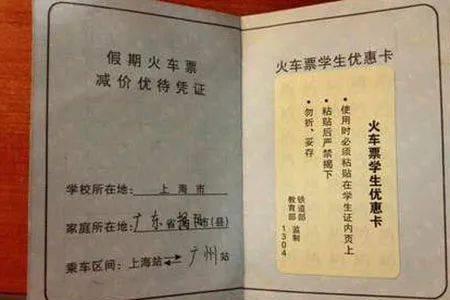 假期火车票
减价优待凭证
学校所在地：上海市
家庭所在地：广东省揭阳市（县）
乘车区间：上海站⇄广州站
火车票学生优惠卡
火车票学生优惠卡
• 使用时必须粘贴在学生证内页上
• 粘贴后严禁揭下
• 勿折、妥存
铁道部
教育部 监制
1304